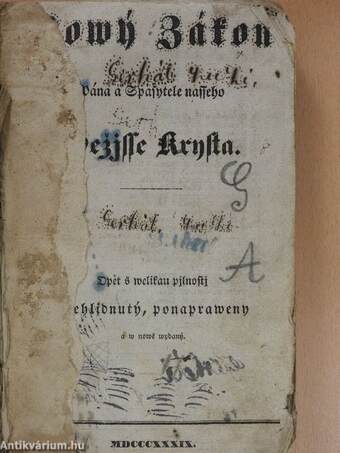 owý Zákon
Gerhát
Pána a Spasytele nasseho
ežjsse Krysta.
G
Gerhát,
A
Opět s welikau pjlnostj
ehlidnutý, ponaprawený
a w nowě wydaný.
MDCCCXXXIX.
Antikvárium.hu